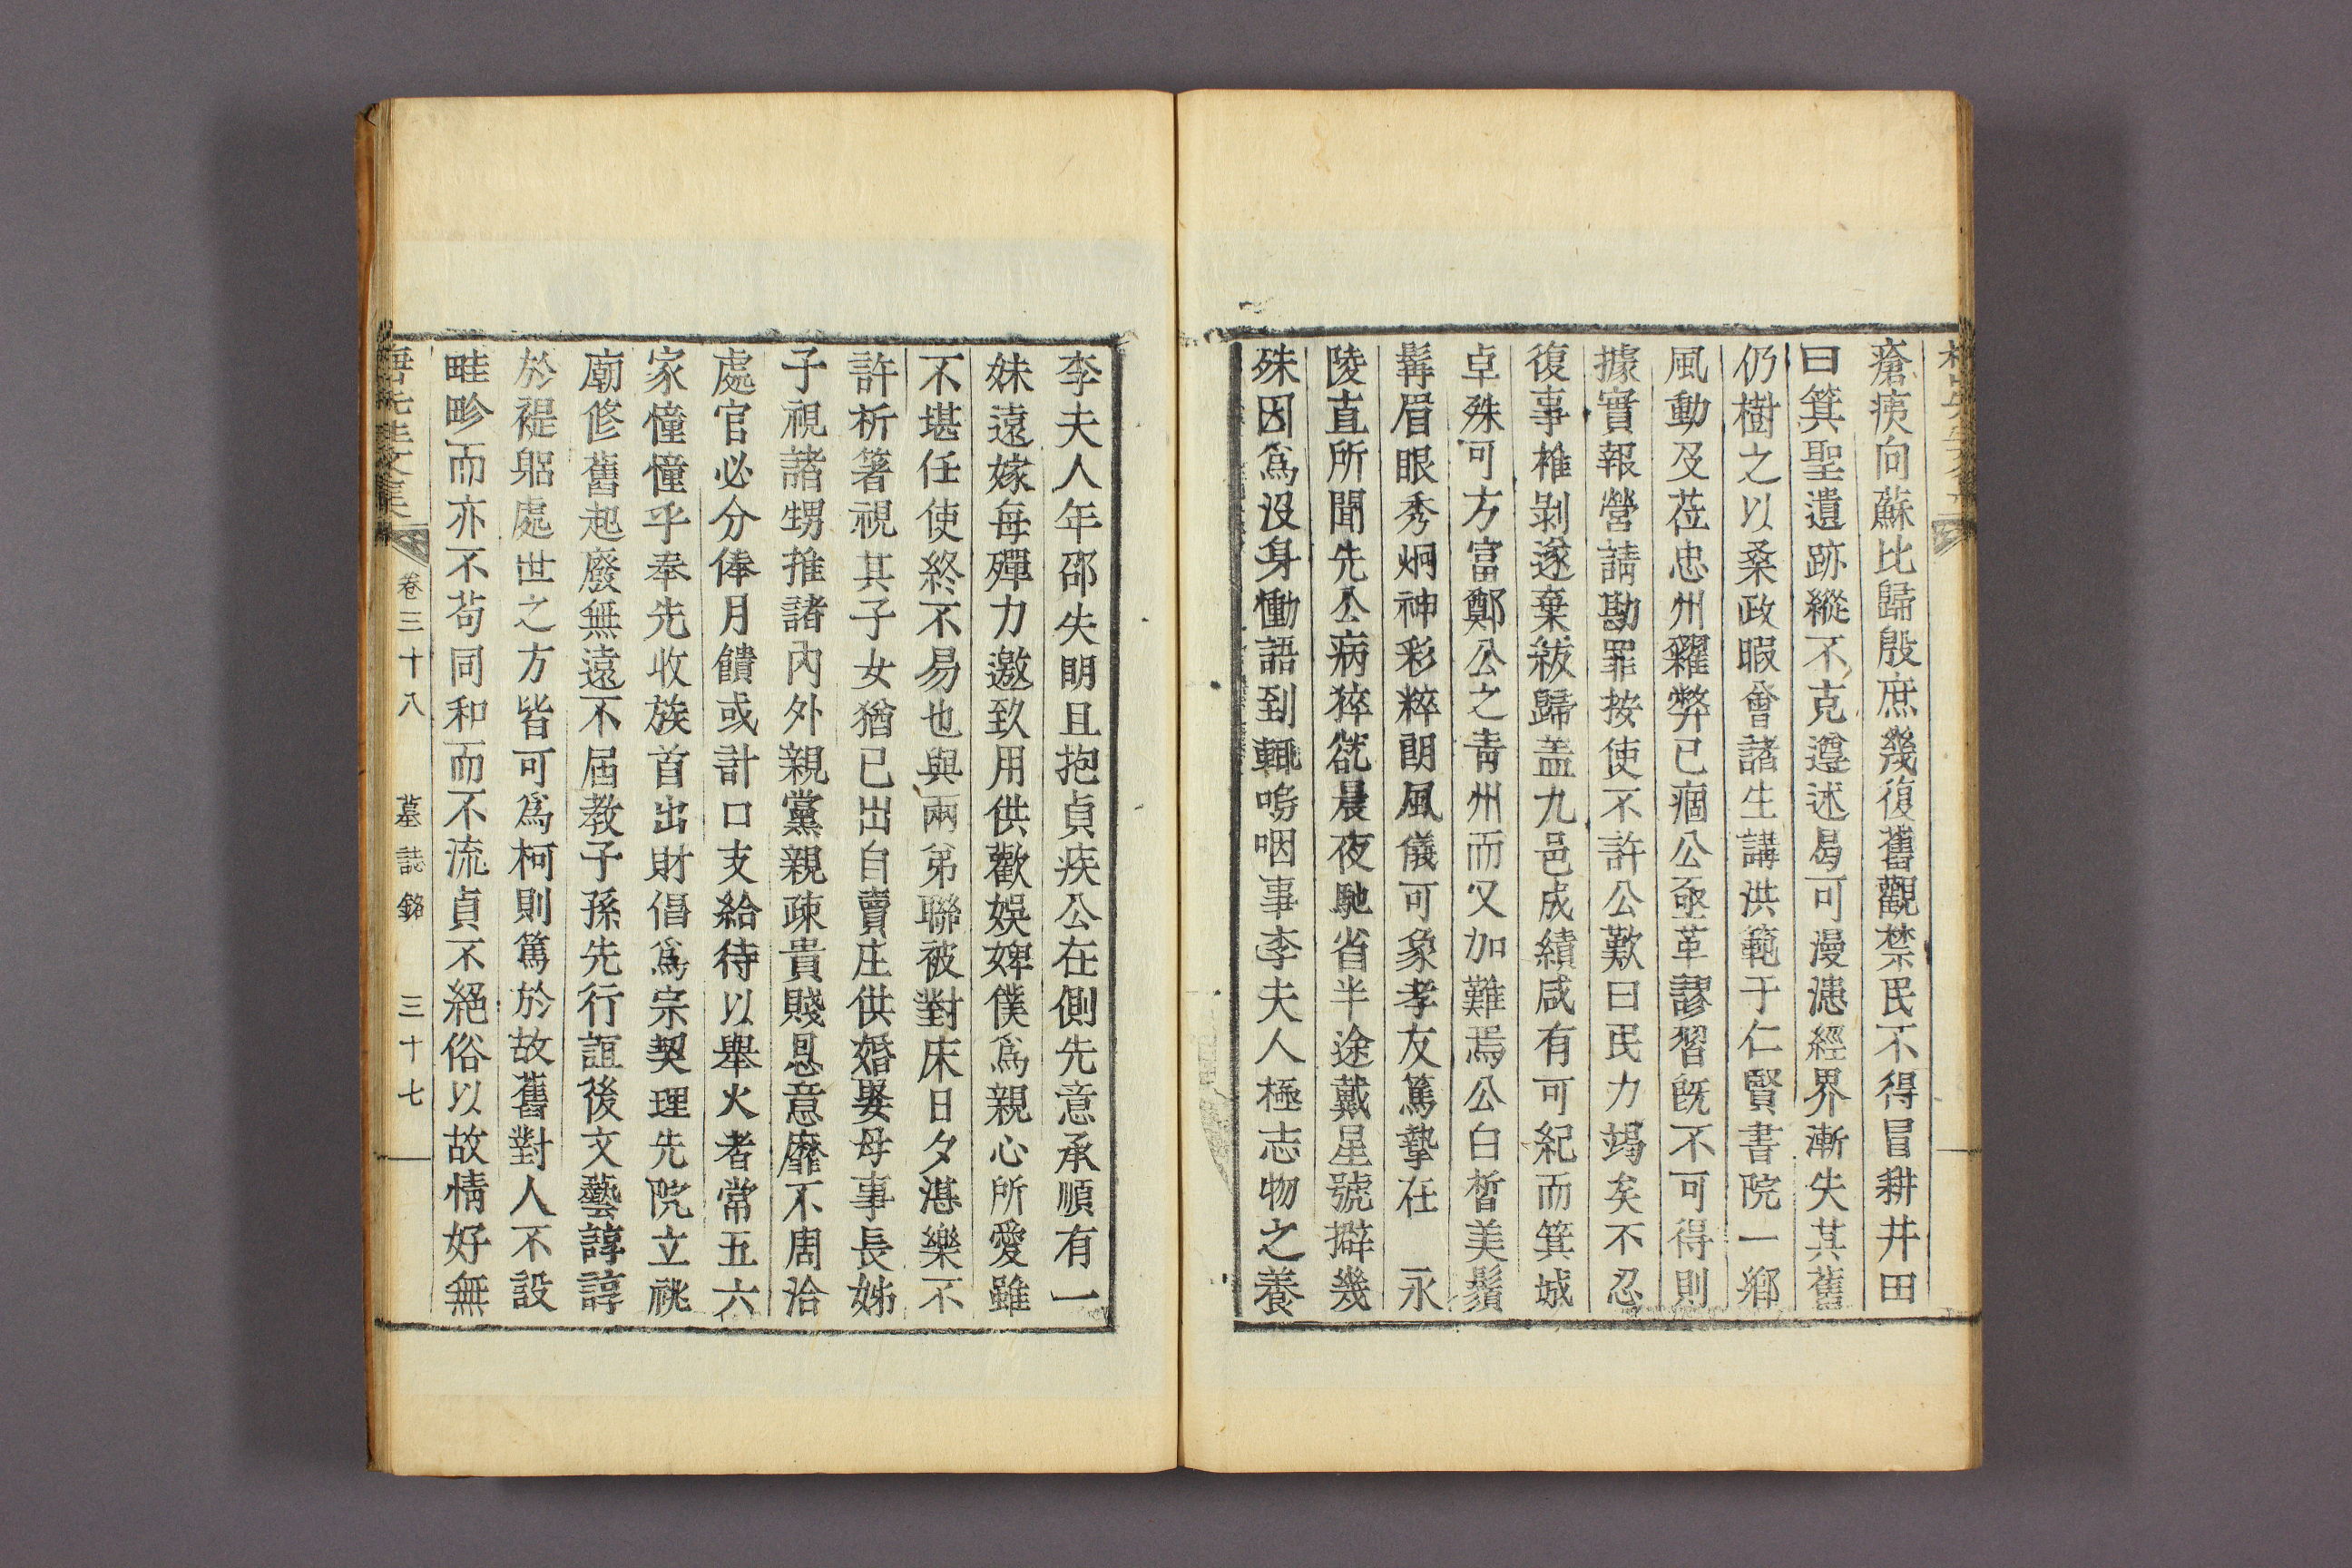 瘡痍向蘇比歸殷庶幾復舊觀禁民不得冒耕井田
曰箕聖遺跡縱不克遵述曷可漫漶經界漸失其舊
仍樹之以桑政暇會諸生講洪範于仁賢書院一鄕
風動及莅忠州糴弊已痼公亟革謬習旣不可得則
據實報營請勘罪按使不許公歎曰民力竭矣不忍
復事椎剝遂棄紱歸盖九邑成績咸有可紀而箕城
卓殊可方富鄭公之靑州而又加難焉公白晳美鬚
髯眉眼秀炯神彩粹朗風儀可象孝友篤摯在 永
陵直所聞先公病猝㞃晨夜馳省半途戴星號擗幾
殊因爲沒身慟語到輒嗚咽事李夫人極志物之養
李夫人年邵失明且抱貞疾公在側先意承順有一
妹遠嫁每殫力邀致用供歡娛婢僕爲親心所愛雖
不堪任使終不易也與兩弟聯被對床日夕湛樂不
許析箸視其子女猶已出自賣庄供婚娶母事長姊
子視諸甥推諸內外親黨親疎貴賤恩意靡不周洽
處官必分俸月饋或計口支給待以舉火者常五六
家憧憧乎奉先收族首出財倡爲宗契理先院立祧
廟修舊起廢無遠不屆教子孫先行誼後文藝諄諄
於褆躳處世之方皆可爲柯則篤於故舊對人不設
畦畛而亦不苟同和而不流貞不絕俗以故情好無
卷三十八 墓誌銘 三十七